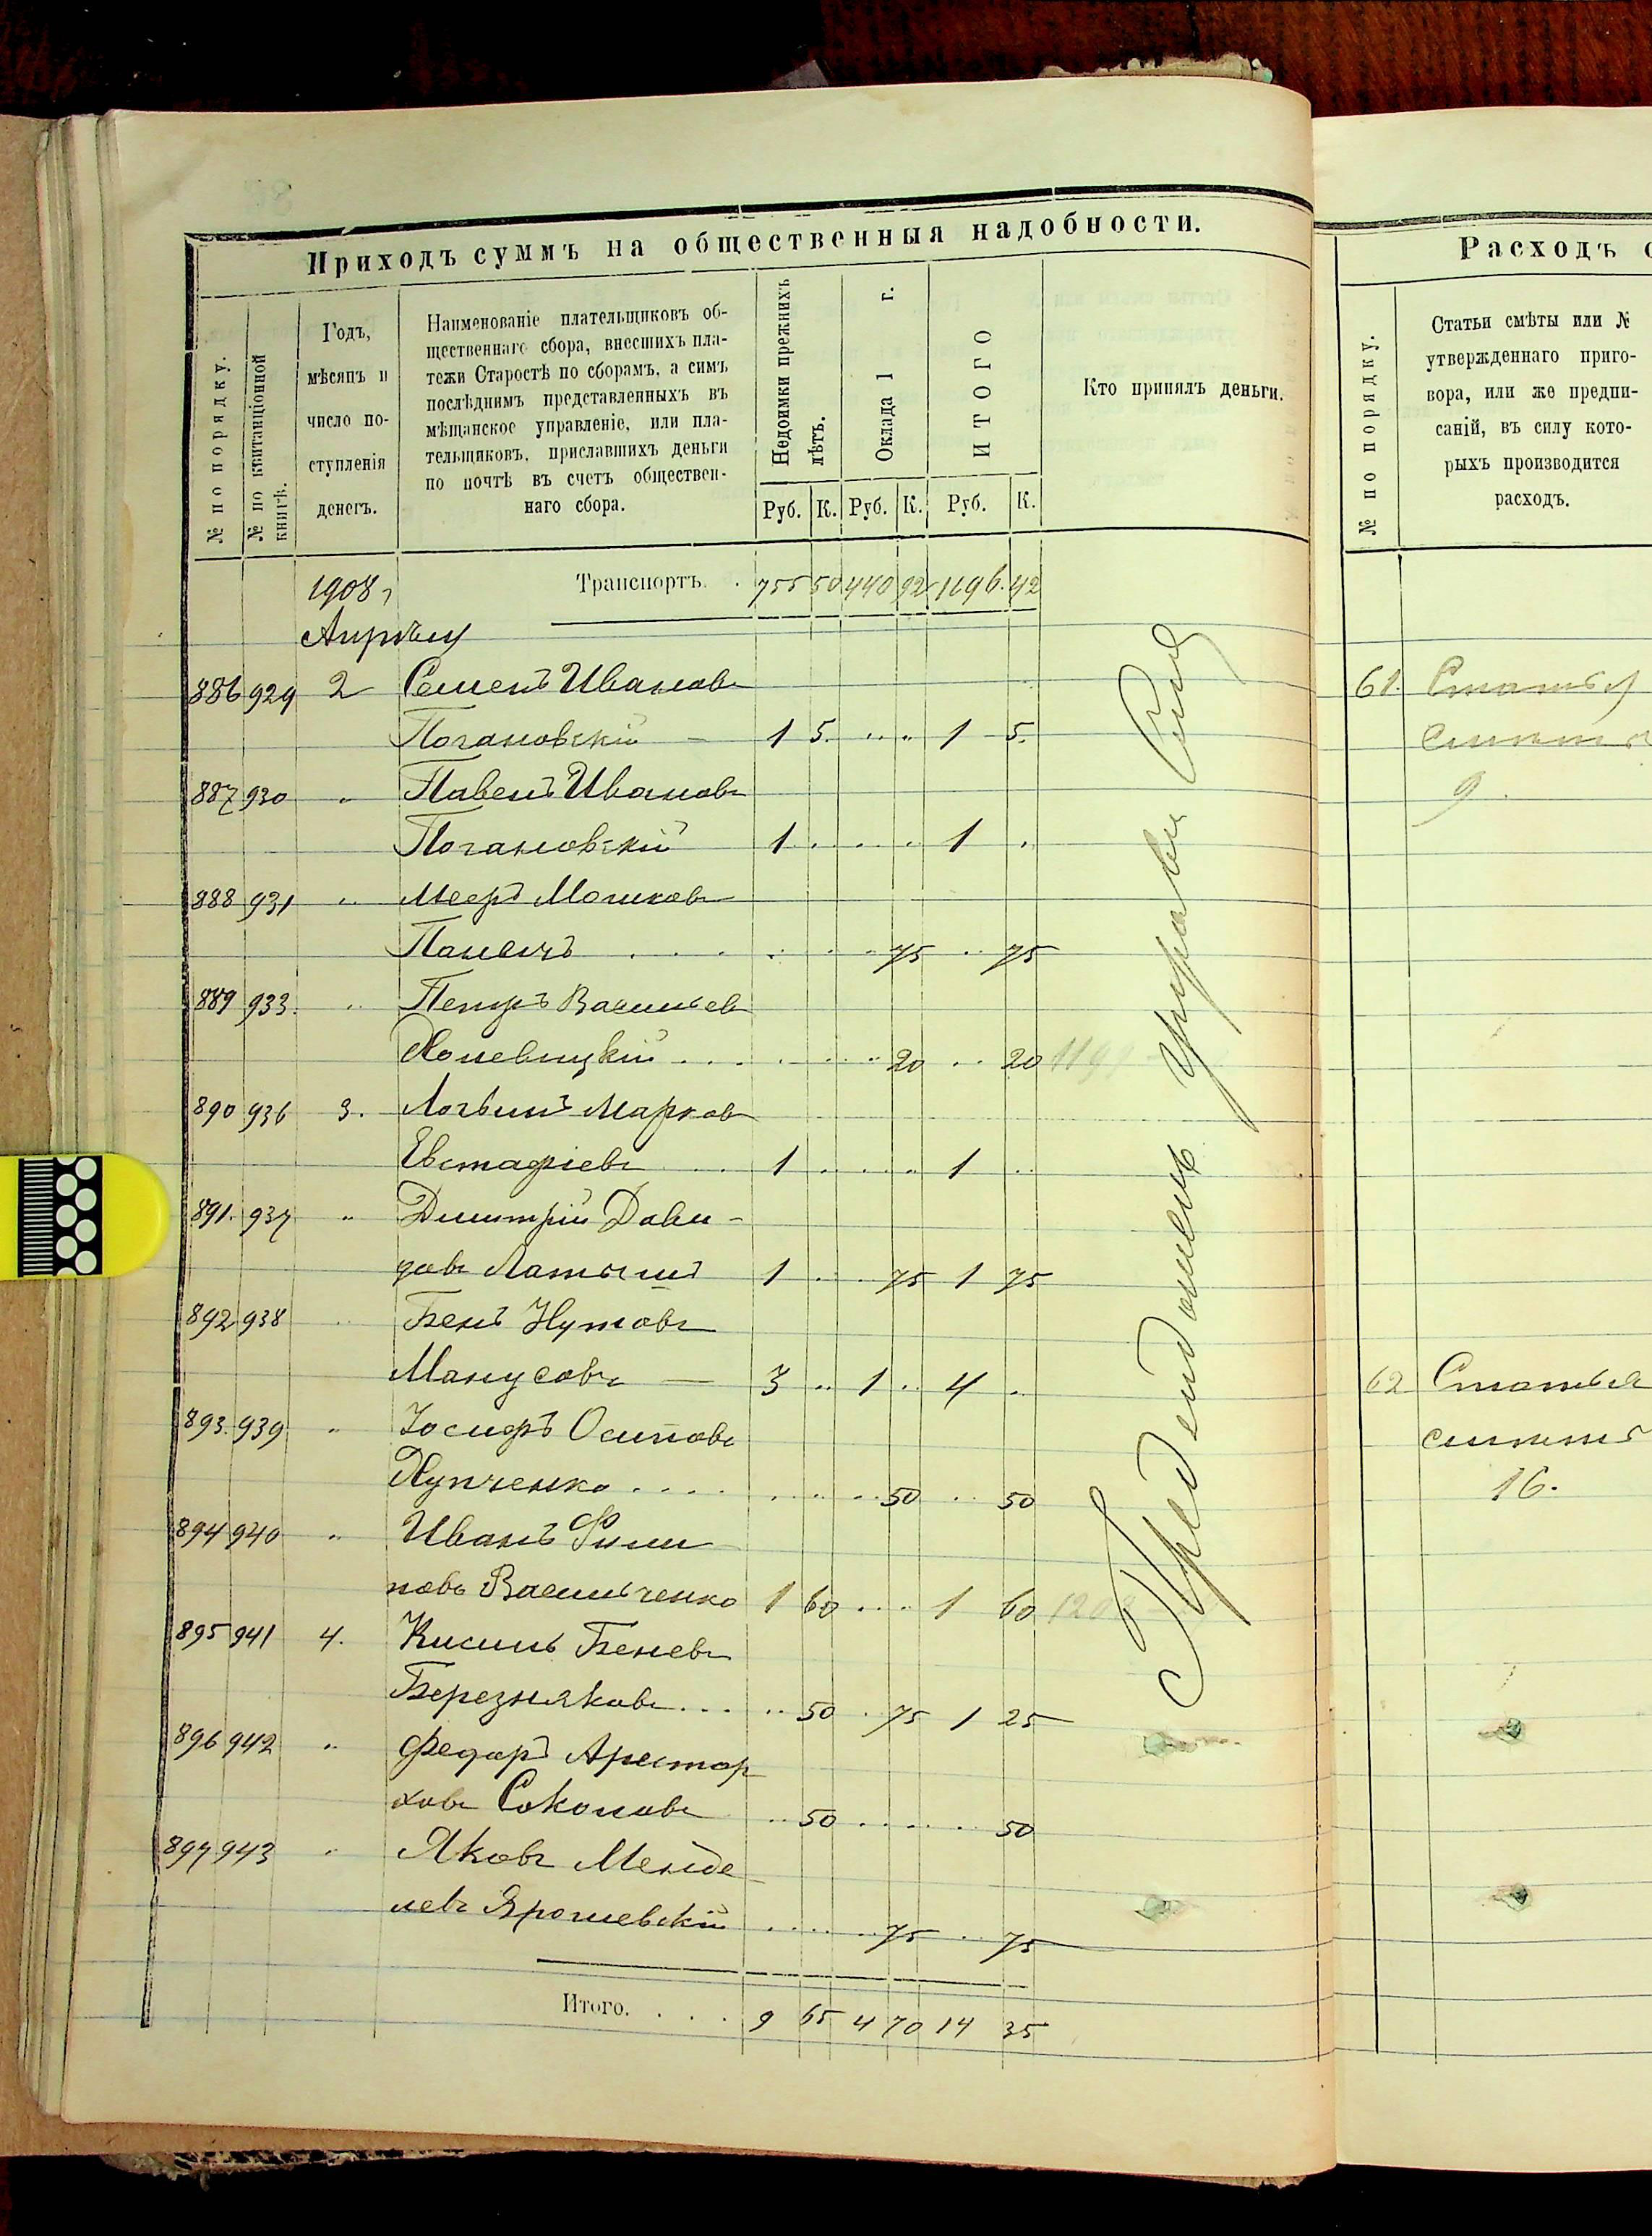 Приходъ суммъ на общественныя надобности.
№ по порядку.
№ по квитанціонной книгѣ.
Годъ,
мѣсяцъ и
число по-
ступленія
денегъ.
Наименованіе плательщиковъ об-
щественнаго сбора, внесшихъ пла-
тежи Старостѣ по сборамъ, а симъ
послѣднимъ представленныхъ въ
мѣщанское управленіе, или пла-
тельщиковъ, приславшихъ деньги
по почтѣ въ счетъ обществен-
наго сбора.
Недоимки прежнихъ лѣтъ.
Оклада 1 г.
ИТОГО
Кто принялъ деньги.
Руб. К. Руб. К. Руб. К.
1908 г Транспортъ. 755 50 440 92 1196. 42
Апрѣля
886 929 2 Семенъ Ивановъ
1 5. 1 5.
887 930 " Павелъ Ивановъ
1 1
888 931 " Мееръ Мошковъ
75 75
889 933. " Петръ Васильев
20 20
890 936 3. Логвинъ Марков
Евстафіевъ 1 1
891. 937 " Димитрій Дави-
довъ Латышъ 1 75 1 75
892 938 Бенъ Нутовъ
Манусовъ — 3 1 4
893. 939 " Іосифъ Осиповъ
Купченко 50 50
894 940 " Иванъ Фили
повъ Васильченко 1 60 1 60
895 941 4. Кисиль Беневъ
Березняковъ 50 75 1 25
896 942 " Федоръ Аристар
ховъ Соколовъ 50 50
897 943 " Яковъ Менде
левъ Ярошевскій 75 75
Итого. 9 65 4 70 14 35
Расходъ с
№ по порядку.
Статьи смѣты или №
утвержденнаго приго-
вора, или же предпи-
саній, въ силу кото-
рыхъ производится
расходъ.
61. Статья
9.
62 Статья
смѣты
16.